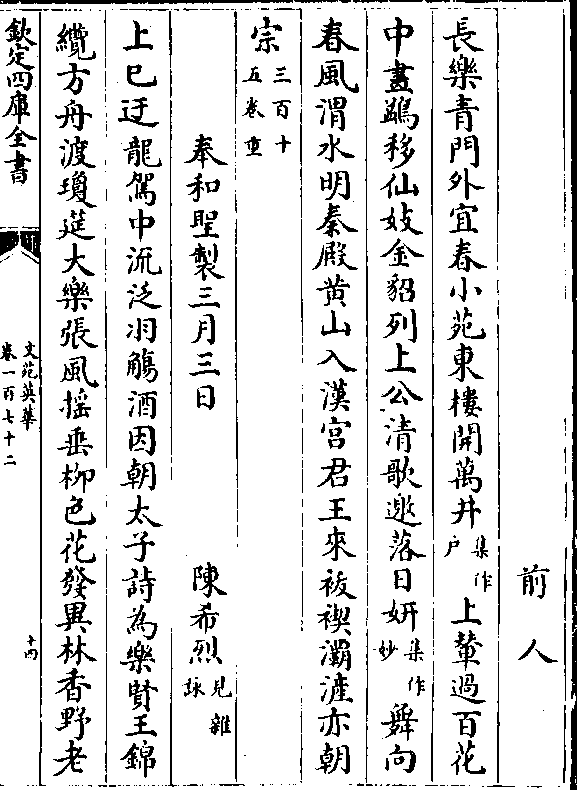 前人
長樂青門外宜春小苑東樓開萬井集作户上輦過百花
中畫鷁移仙妓金貂列上公清歌邀落日妍集作妙舞向
春風渭水明秦殿黄山入漢宫君王來祓禊灞滻亦朝
宗三百十五卷重
奉和聖製三月三日
陳希烈見雜詠
上巳迂龍駕中流泛羽觴酒因朝太子詩為樂賢王錦
纜方舟渡瓊筵大樂張風揺垂柳色花發異林香野老
欽定四庫全書
文苑英華
卷一百七十二
十四